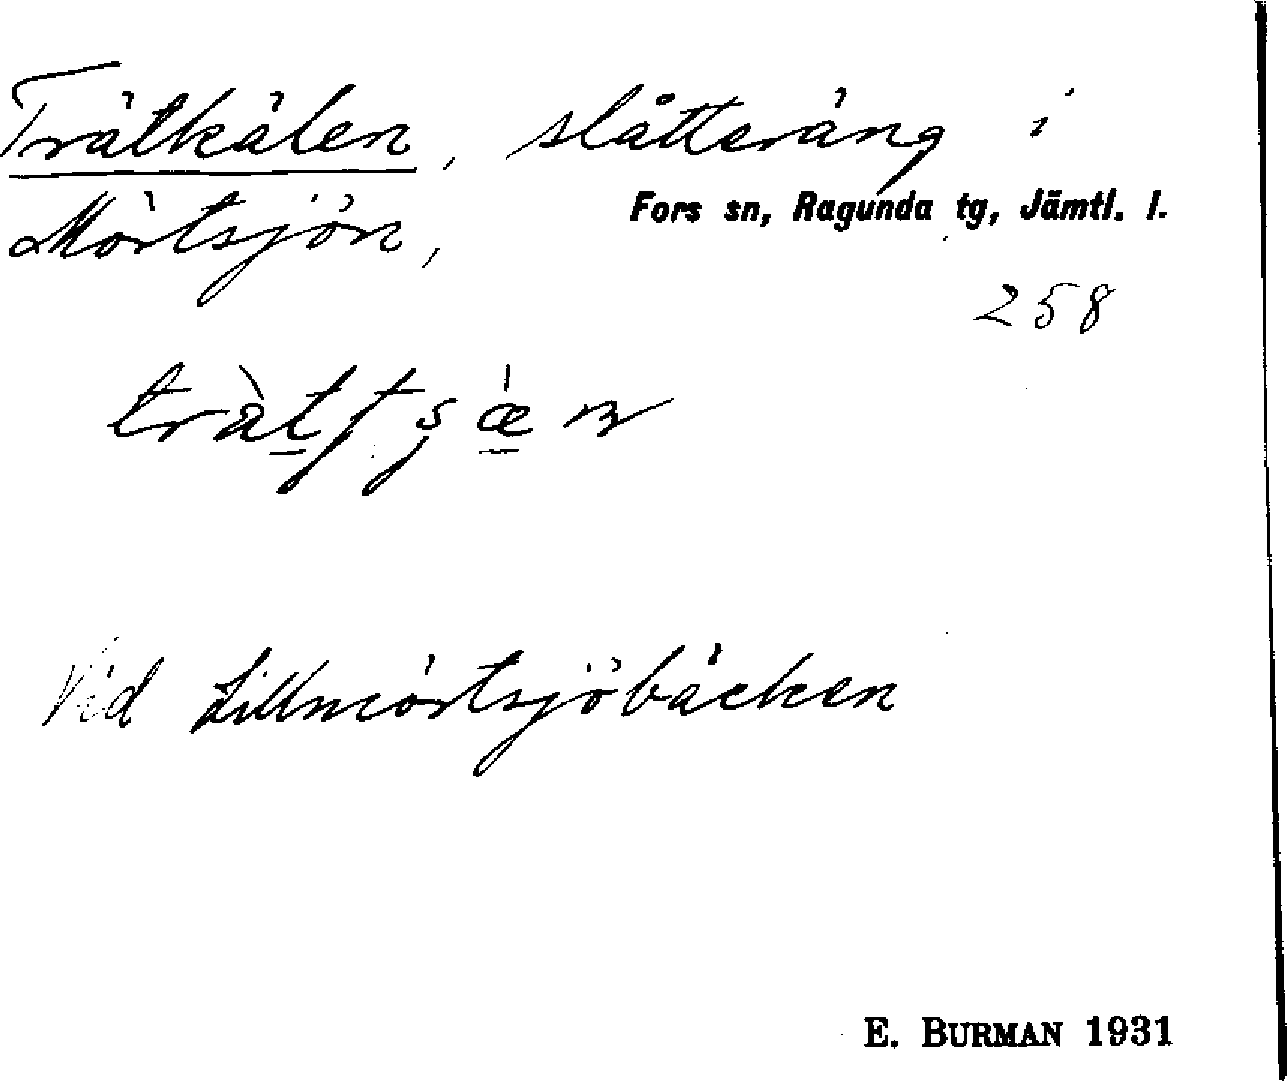 Trätkälen, slåtteräng i
Mörtsjön,
Fors sn, Ragunda tg, Jämtl. l.
258
Vid Lillmörtsjöbäcken
E. BURMAN 1931